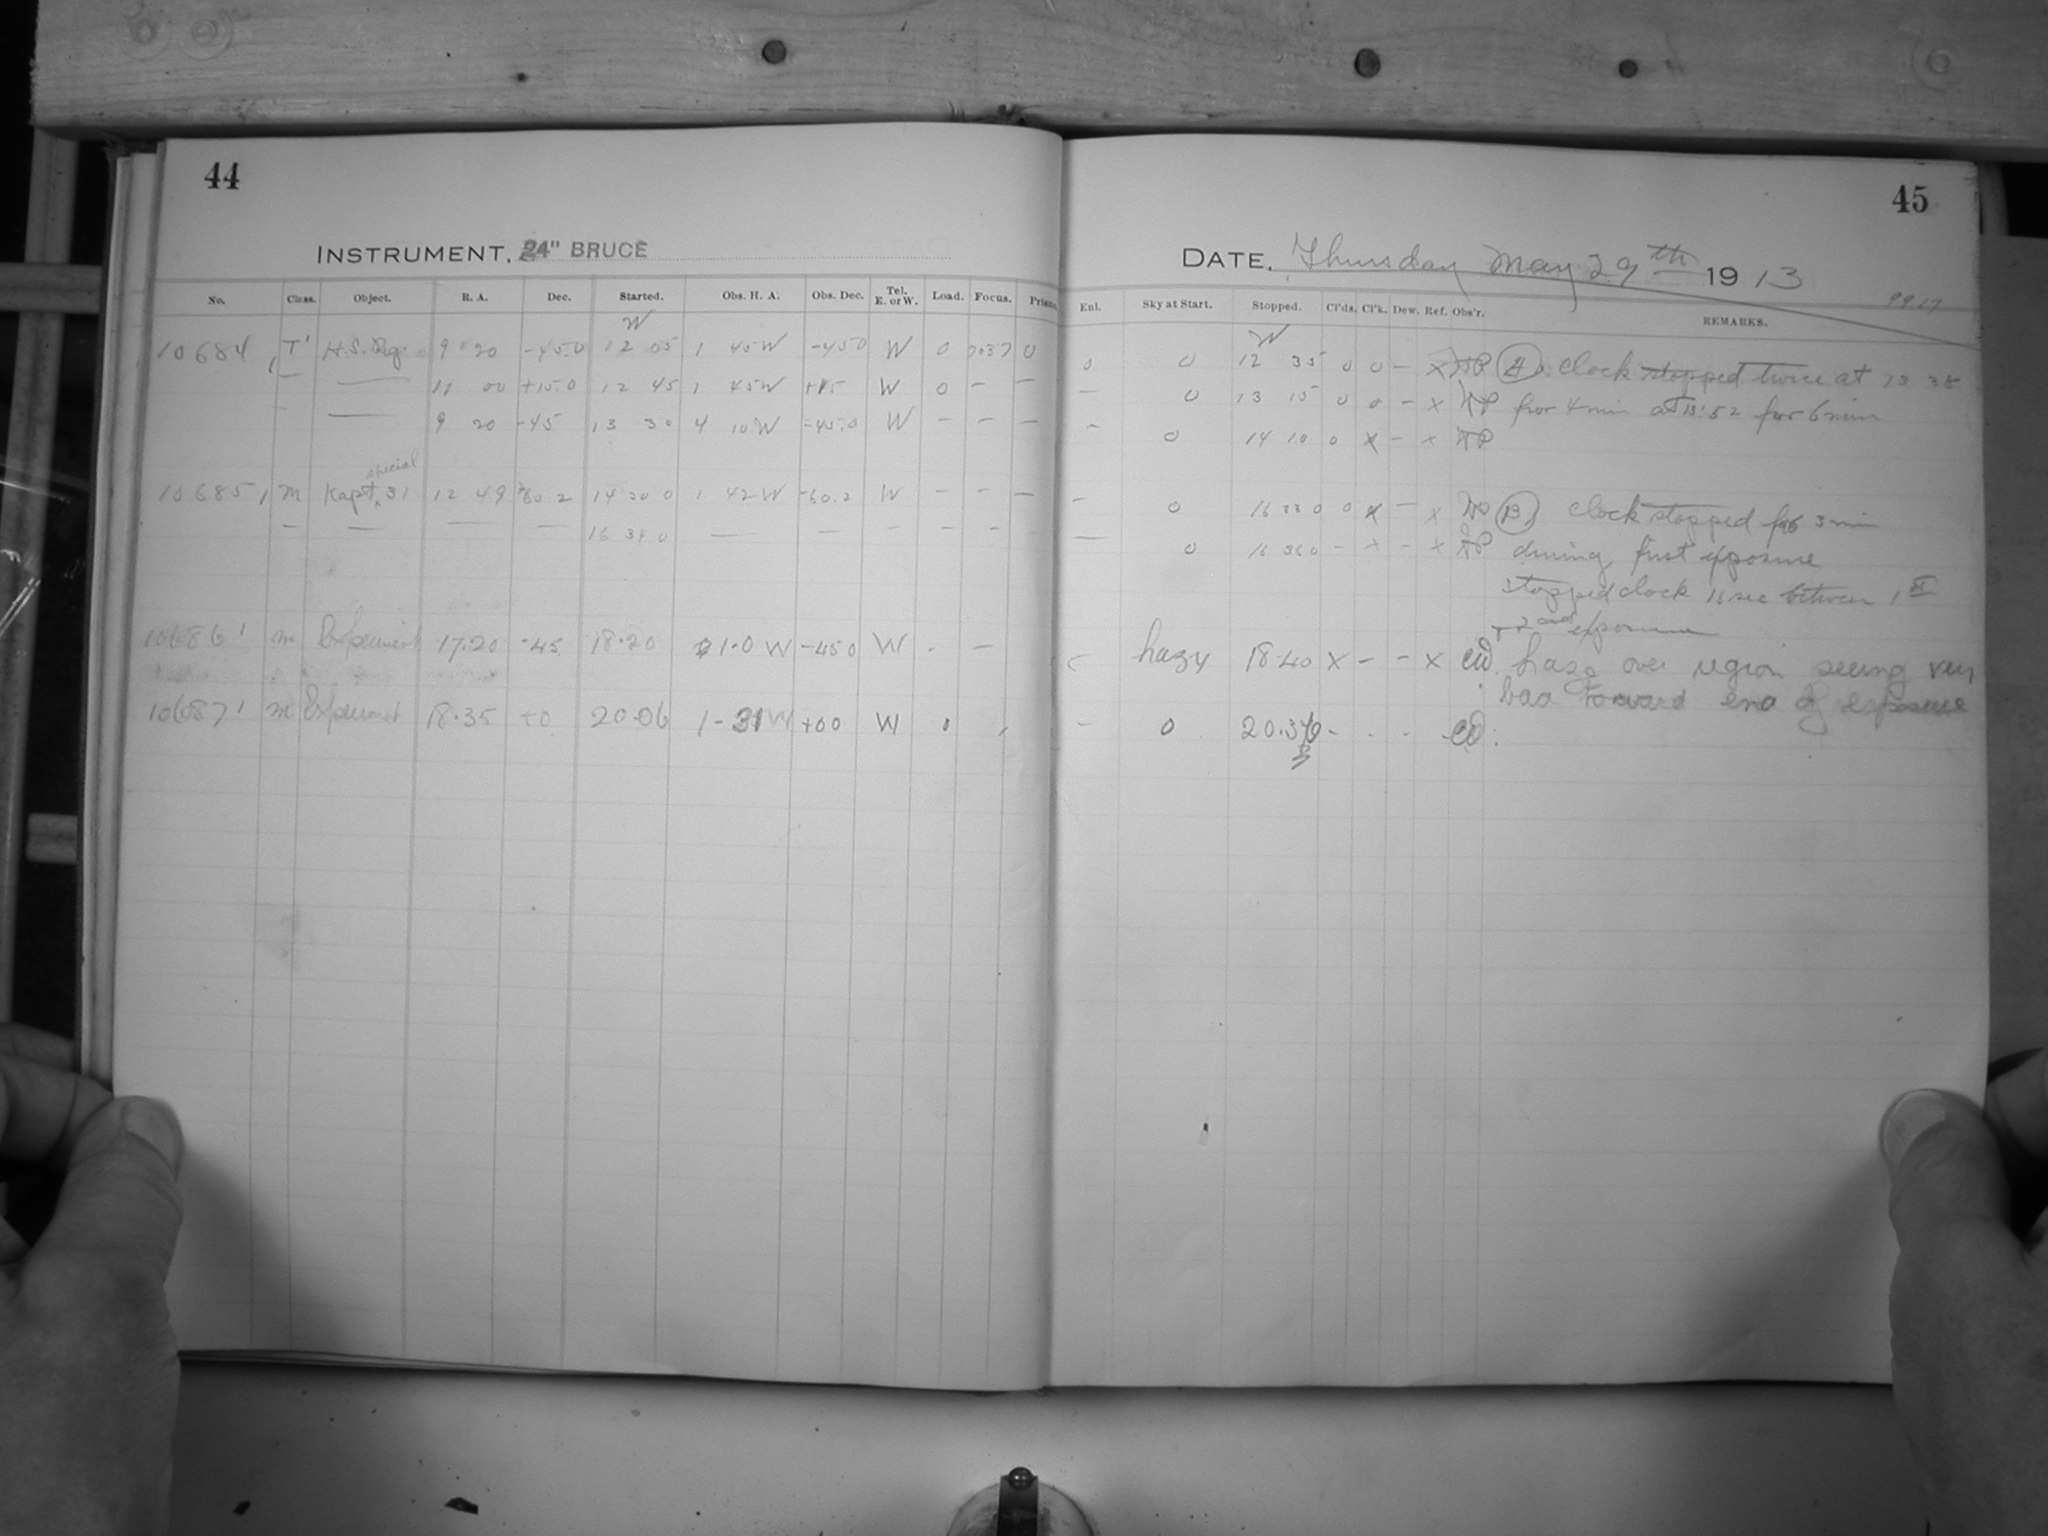 44
INSTRUMENT, 24" BRUCE
No. Class. Object. R. A. Dec. Started. Obs. H. A. Obs. Dec. Tel. E. or W. Load. Focus. Prisms.
W
10684, T' H.S. Reg. 9 20 -45.0 12 05 1 45W -450 W 0 0
— — 11 00 +15.0 12 45 1 45W +15 W 0 — —
— 9 20 -45 13 30 4 10W -45.0 W — — —
special
10685, m Kapt. 31 12 49 -60.2 14 20 0 1 42W -60.2 W — — —
— — — — 16 34 0 — — — — — —
10686' m Experiment 17.20 -45 18.20 1.0 W -45 0 W . —
10687' m Experiment 18.35 +0 20.06 1-31W +00 W
45
DATE, Thursday May 29th 1913
9917
Enl. Sky at Start. Stopped. Cl'ds. Cl'k. Dew. Ref. Obs'r. REMARKS.
W
0 0 12 35 0 0 — x (A) clock stopped twice at 13 38
— 0 13 15 0 0 — x for 4 min at 13:52 for 6 min
— 0 14 10 0 x — x
— 0 16 33 0 0 x — x (B) clock stopped for 3 min
— 0 16 36 0 — x — x during first exposure
stopped clock 11 sec between 1st
+ 2nd exposure
hazy 18.40 x — — x haze over region seeing very
bad toward end of exposure
— 0 20.36 - . .